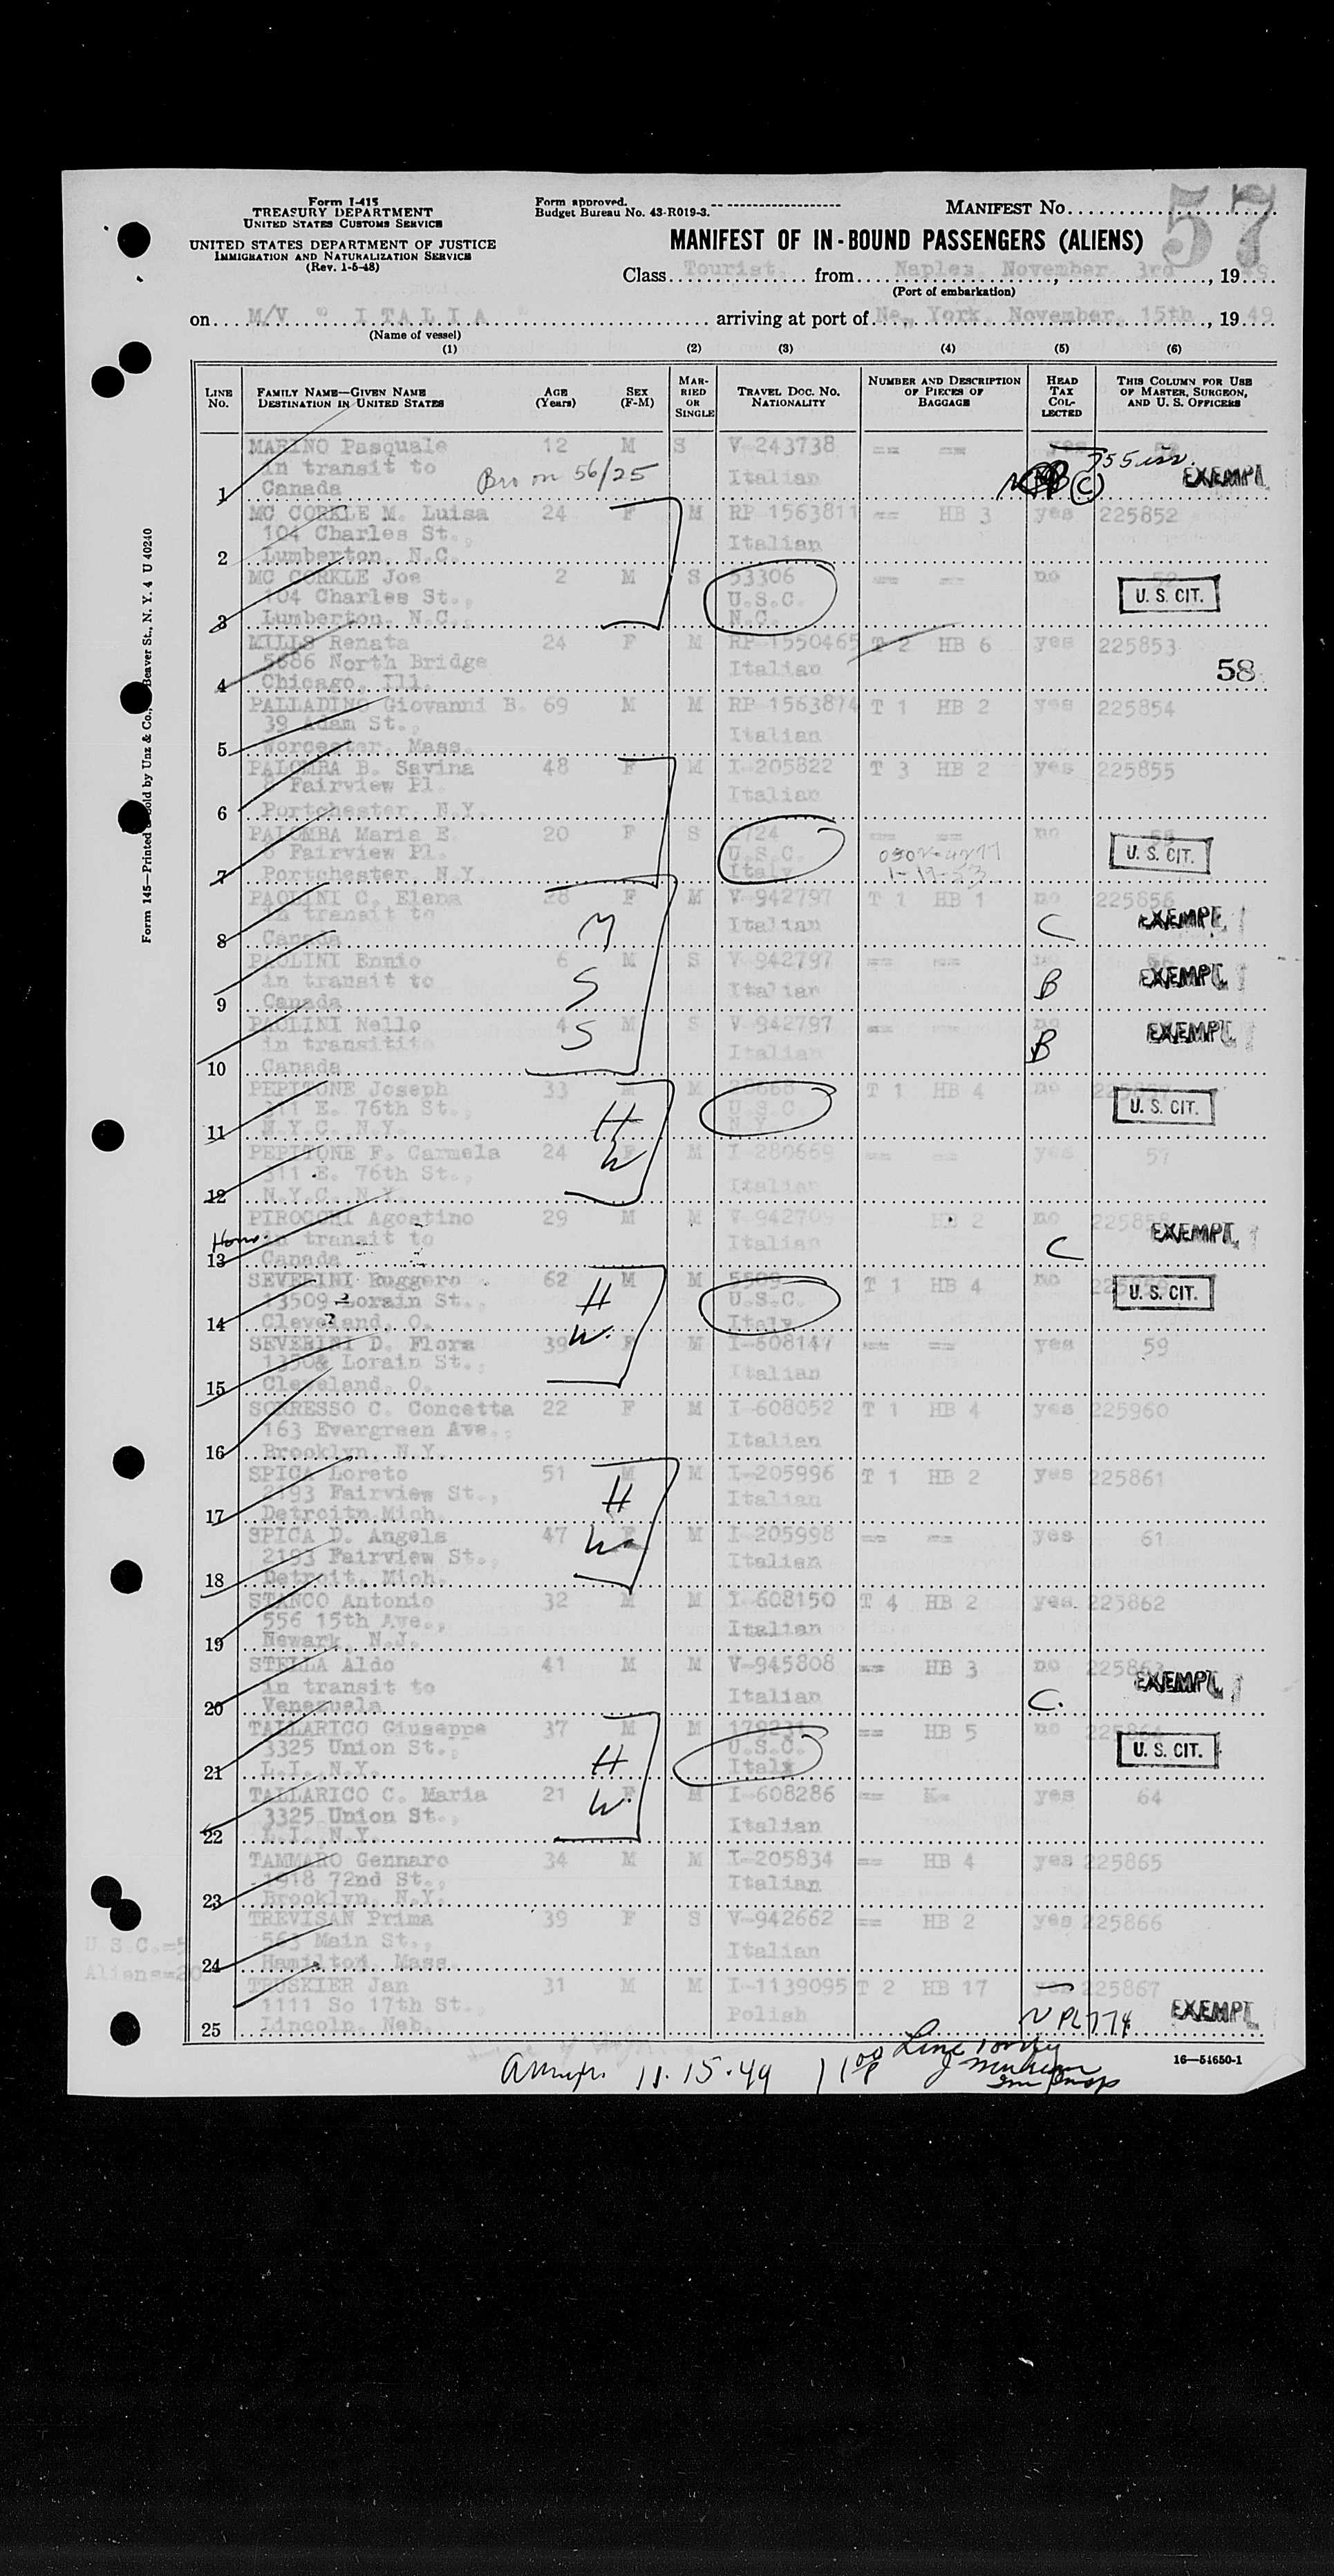 57
Form I-415
TREASURY DEPARTMENT
UNITED STATES CUSTOMS SERVICE
UNITED STATES DEPARTMENT OF JUSTICE
IMMIGRATION AND NATURALIZATION SERVICE
(Rev. 1-5-48)
Form approved.
Budget Bureau No. 43-R019-3.
MANIFEST NO.
MANIFEST OF IN-BOUND PASSENGERS (ALIENS)
Class Tourist. from Naples, November 3rd, 1949
(Port of embarkation)
on M/V " ITALIA " arriving at port of New York, November, 15th, 1949
(Name of vessel)
(1) (2) (3) (4) (5) (6)
LINE NO. FAMILY NAME—GIVEN NAME DESTINATION IN UNITED STATES AGE (Years) SEX (F-M) MARRIED OR SINGLE TRAVEL DOC. NO. NATIONALITY NUMBER AND DESCRIPTION OF PIECES OF BAGGAGE HEAD TAX COLLECTED THIS COLUMN FOR USE OF MASTER, SURGEON, AND U. S. OFFICERS
MARINO Pasquale 12 M S V-243738 == == yes
in transit to Bro on 56/25 Italian (C) EXEMPT
1 Canada
MC CORKLE M. Luisa 24 F M RP 1563811 == HB 3 yes 225852
104 Charles St., Italian
2 Lumberton, N.C.
MC CORKLE Joe 2 M S 53306 == == no 52
104 Charles St., U.S.C. U. S. CIT.
3 Lumberton, N.C. N.C.
MILLS Renata 24 F M RP 1550465 T 2 HB 6 yes 225853
5686 North Bridge Italian 58
4 Chicago, Ill.
PALLADINO Giovanni B. 69 M M RP 1563874 T 1 HB 2 yes 225854
39 Adam St., Italian
5 Worcester, Mass.
PALOMBA B. Savina 48 F M I-205822 T 3 HB 2 yes 225855
Fairview Pl. Italian
6 Portchester, N.Y.
PALOMBA Maria E. 20 F S 2724 == == no
Fairview Pl. U.S.C. U. S. CIT.
7 Portchester, N.Y. Italy 1-19-53
PAOLINI C. Elena 28 F M V-942797 T 1 HB 1 no 225856
in transit to M Italian C EXEMPT
8 Canada
PAOLINI Ennio 6 M S V-942797 == == 56
in transit to S Italian B EXEMPT
9 Canada
PAOLINI Nello 4 M S V-942797 == == no
in transitito S Italian B EXEMPT
10 Canada
PEPITONE Joseph 33 M M T 1 HB 4 no
311 E. 76th St., H U.S.C. U. S. CIT.
11 N.Y.C. N.Y. N.Y.
PEPITONE F. Carmela 24 F M I 280669 == == yes 57
311 E. 76th St., W Italian
12 N.Y.C. N.Y.
PIROCCHI Agostino 29 M M V-942709 HB 2 no 225858
in transit to Italian C EXEMPT
13 Canada
SEVERINI Ruggero 62 M M 5509 T 1 HB 4 no
13509 Lorain St., H U.S.C. U. S. CIT.
14 Cleveland, O. Italy
SEVERINI D. Flora 39 F M I-608147 == == yes 59
Lorain St., W. Italian
15 Cleveland, O.
SORRESSO C. Concetta 22 F M I-608052 T 1 HB 4 yes 225960
163 Evergreen Ave., Italian
16 Brooklyn, N.Y.
SPICA Loreto 51 M M I-205996 T 1 HB 2 yes 225861
2193 Fairview St., H Italian
17 Detroitn Mich.
SPICA D. Angela 47 F M I-205998 == == yes 61
2193 Fairview St., W Italian
18 Detroit, Mich.
STANCO Antonio 32 M M I-608150 T 4 HB 2 yes. 225862
556 15th Ave., Italian
19 Newark, N.J.
STELLA Aldo 41 M M V-945808 == HB 3 no 225863
in transit to Italian C. EXEMPT
20 Venezuela
TALLARICO Giuseppe 37 M M == HB 5 no
3325 Union St., H U.S.C. U. S. CIT.
21 L.I., N.Y. Italy
TALLARICO C. Maria 21 F M I-608286 == yes 64
3325 Union St., W. Italian
22 L.I., N.Y.
TAMMARO Gennaro 34 M M I-205834 == HB 4 yes 225865
1818 72nd St., Italian
23 Brooklyn, N.Y.
TREVISAN Prima 39 F S V-942662 == HB 2 yes 225866
563 Main St., Italian
24 Hamilton, Mass.
TRUSKIER Jan 31 M M I-1139095 T 2 HB 17 yes 225867
1111 So 17th St., Polish EXEMPT
25 Lincoln, Neb. PL 774
U.S.C.=5
Aliens=20
11.15.49 Line
16—54650-1